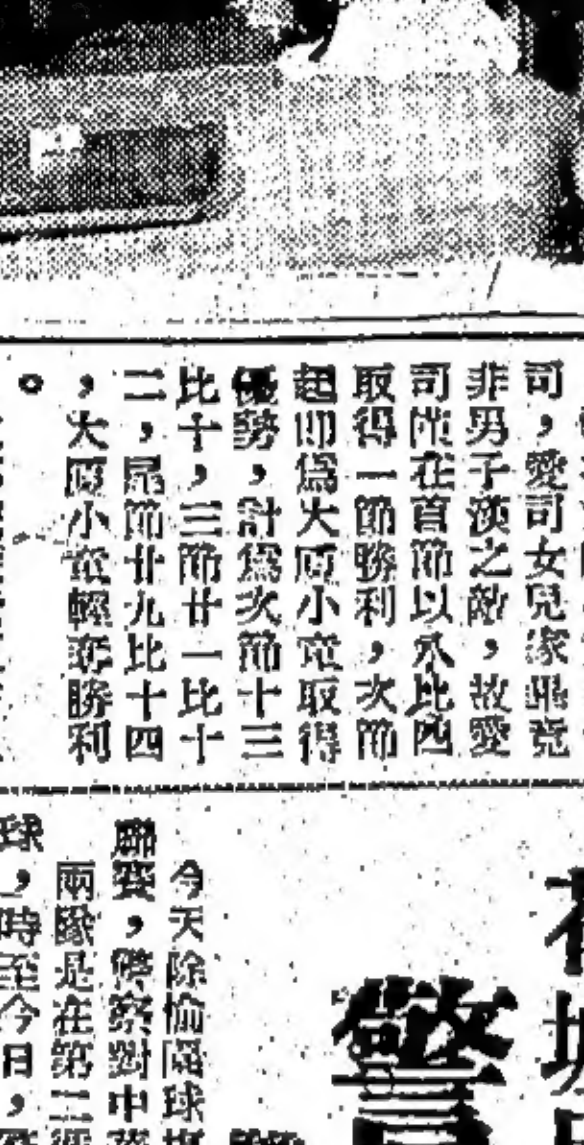 司，愛司女兒家畢竟
非男子漢之敵，故愛
司僅在首節以八比四
取得一節勝利，次節
起即爲大厦小童取得
優勢，計爲次節十三
比十，三節廿一比十
二，尾節廿九比十四
，大厦小童輕取勝利
。
警
今天除愉園球場
聯賽，警察對中
兩隊是在第二循
球，時至今日，